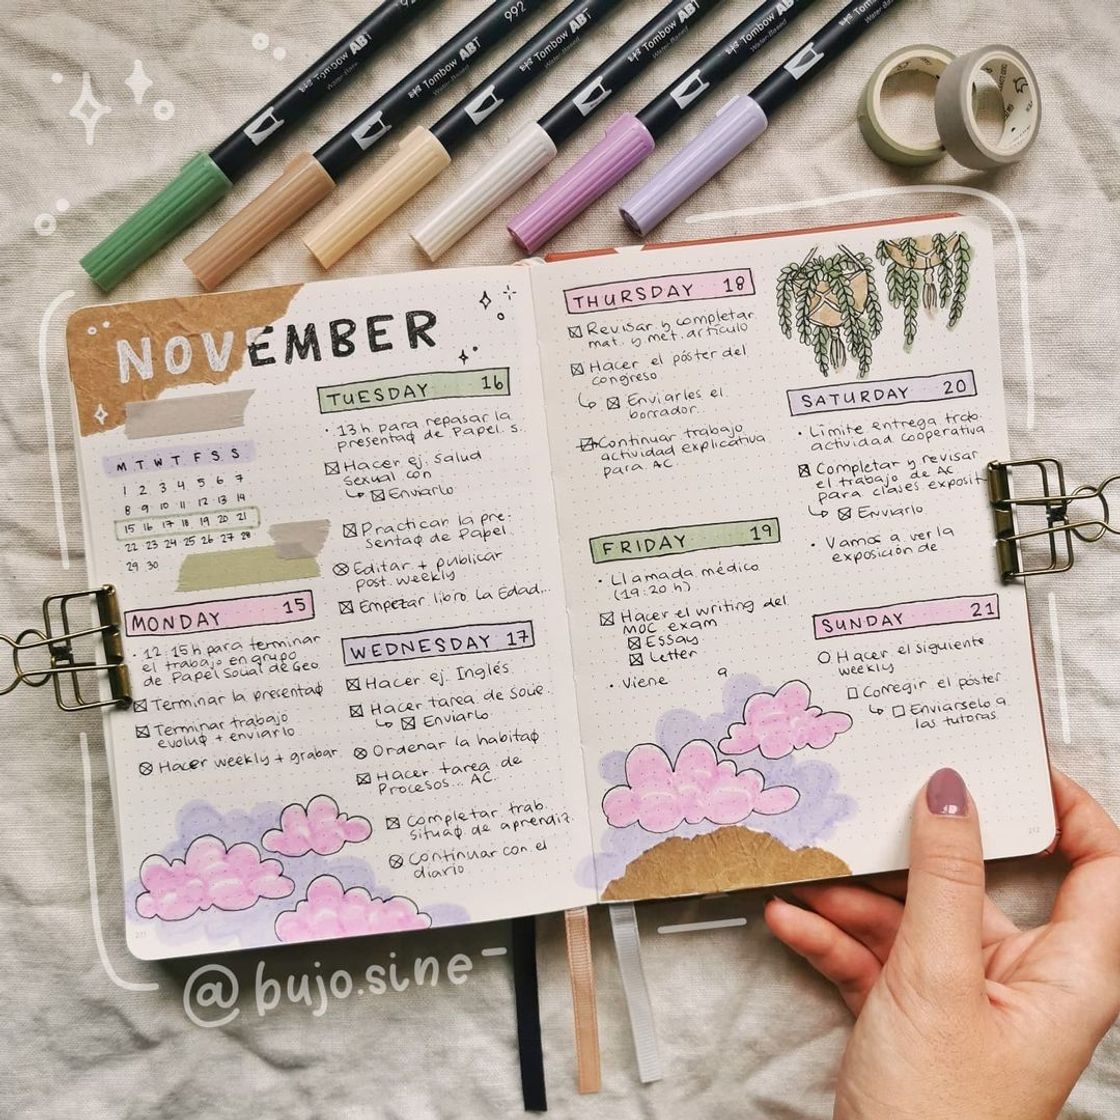 992
Tombow ABT
Water-Based
Tombow ABT
Water-Based
Tombow ABT
Water-Based
Tombow ABT
Water-Based
Tombow ABT
Water-Based
Tombow
NOVEMBER
M T W T F S S
1 2 3 4 5 6 7
8 9 10 11 12 13 14
15 16 17 18 19 20 21
22 23 24 25 26 27 28
29 30
MONDAY 15
· 12:15h para terminar
el trabajo en grupo
de Papel Social de Geo
Terminar la presentaφ
Terminar trabajo
evoluφ + enviarlo
Hacer weekly + grabar
TUESDAY 16
· 13h para repasar la
presentaφ de Papel. s.
Hacer ej. salud
sexual con
↳ Enviarlo
Practicar la pre-
sentaφ de Papel
Editar + publicar
post. weekly
Empezar libro La Edad...
WEDNESDAY 17
Hacer ej. Inglés
Hacer tarea de Socie.
↳ Enviarlo
Ordenar la habitaφ
Hacer tarea de
Procesos... AC.
Completar trab.
situaφ. de aprendiz.
Continuar con el
diario
THURSDAY 18
Revisar y completar
mat. y met. artículo
Hacer el póster del
congreso
↳ Enviarles el
borrador
Continuar trabajo
actividad explicativa
para AC
FRIDAY 19
· Llamada médico
(19:20 h)
Hacer el writing del
MOC exam
Essay
Letter
· Viene a
SATURDAY 20
· Límite entrega trab.
actividad cooperativa
Completar y revisar
el trabajo de AC
para clases exposit
↳ Enviarlo
· Vamos a ver la
exposición de
SUNDAY 21
Hacer el siguiente
weekly
Corregir el póster
↳ Enviárselo a
las tutoras
211
212
@bujo.sine